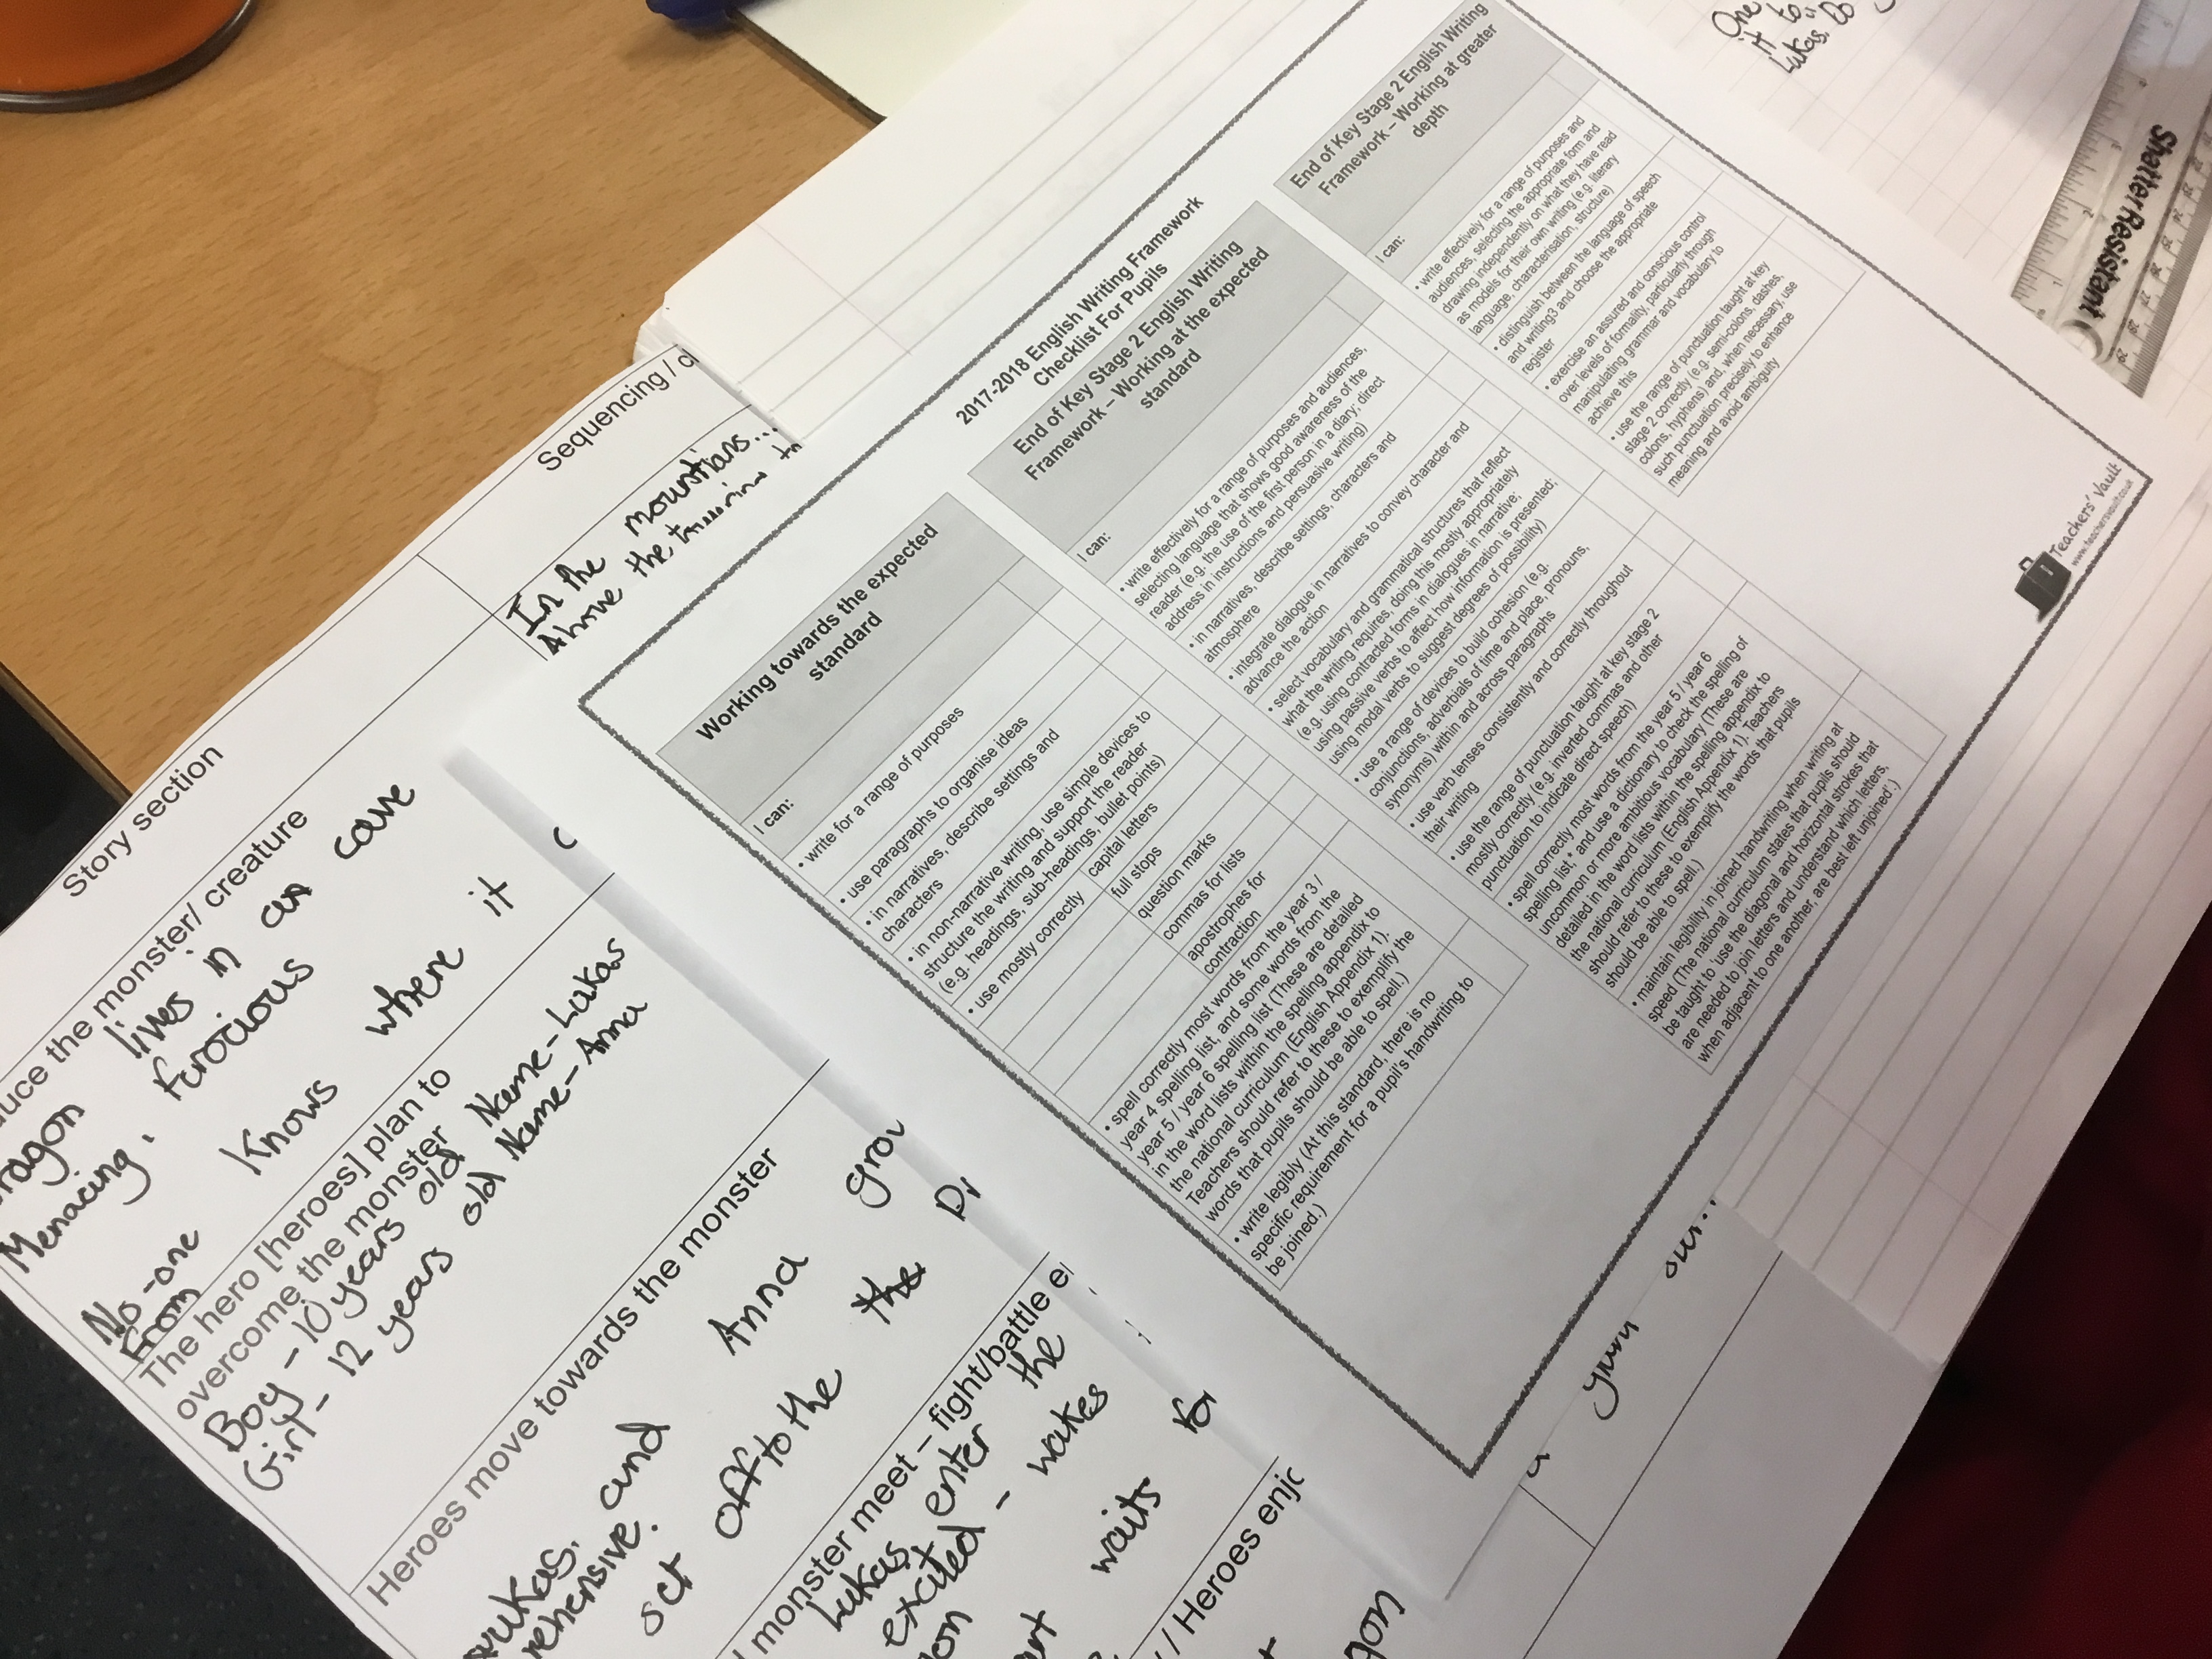 Story section
Sequencing / d
uce the monster/ creature
ragon lives in an cave
Menacing, Ferocious
No-one Knows where it
From
In the mountians...
Above the
The hero [heroes] plan to
overcome the monster
Boy - 10 years old Name - Lukas
Girl - 12 years old Name - Anna
Heroes move towards the monster
and Anna
rehensive.
set off to the the
monster meet – fight/battle e
Lukas enter the
excited - wakes
waits for
/ Heroes enjo
2017-2018 English Writing Framework
Checklist For Pupils
Working towards the expected
standard
I can:
• write for a range of purposes
• use paragraphs to organise ideas
• in narratives, describe settings and
characters
• in non-narrative writing, use simple devices to
structure the writing and support the reader
(e.g. headings, sub-headings, bullet points)
• use mostly correctly
capital letters
full stops
question marks
commas for lists
apostrophes for
contraction
• spell correctly most words from the year 3 /
year 4 spelling list, and some words from the
year 5 / year 6 spelling list (These are detailed
in the word lists within the spelling appendix to
the national curriculum (English Appendix 1).
Teachers should refer to these to exemplify the
words that pupils should be able to spell.)
• write legibly (At this standard, there is no
specific requirement for a pupil's handwriting to
be joined.)
End of Key Stage 2 English Writing
Framework – Working at the expected
standard
I can:
• write effectively for a range of purposes and audiences,
selecting language that shows good awareness of the
reader (e.g. the use of the first person in a diary; direct
address in instructions and persuasive writing)
• in narratives, describe settings, characters and
atmosphere
• integrate dialogue in narratives to convey character and
advance the action
• select vocabulary and grammatical structures that reflect
what the writing requires, doing this mostly appropriately
(e.g. using contracted forms in dialogues in narrative;
using passive verbs to affect how information is presented;
using modal verbs to suggest degrees of possibility)
• use a range of devices to build cohesion (e.g.
conjunctions, adverbials of time and place, pronouns,
synonyms) within and across paragraphs
• use verb tenses consistently and correctly throughout
their writing
• use the range of punctuation taught at key stage 2
mostly correctly (e.g. inverted commas and other
punctuation to indicate direct speech)
• spell correctly most words from the year 5 / year 6
spelling list,* and use a dictionary to check the spelling of
uncommon or more ambitious vocabulary (These are
detailed in the word lists within the spelling appendix to
the national curriculum (English Appendix 1). Teachers
should refer to these to exemplify the words that pupils
should be able to spell.)
• maintain legibility in joined handwriting when writing at
speed (The national curriculum states that pupils should
be taught to 'use the diagonal and horizontal strokes that
are needed to join letters and understand which letters,
when adjacent to one another, are best left unjoined'.)
End of Key Stage 2 English Writing
Framework – Working at greater
depth
I can:
• write effectively for a range of purposes and
audiences, selecting the appropriate form and
drawing independently on what they have read
as models for their own writing (e.g. literary
language, characterisation, structure)
• distinguish between the language of speech
and writing3 and choose the appropriate
register
• exercise an assured and conscious control
over levels of formality, particularly through
manipulating grammar and vocabulary to
achieve this
• use the range of punctuation taught at key
stage 2 correctly (e.g. semi-colons, dashes,
colons, hyphens) and, when necessary, use
such punctuation precisely to enhance
meaning and avoid ambiguity
Teachers' Vault
www.teachersvault.co.uk
One
it to
Lukas. Do
Shatter Resistant